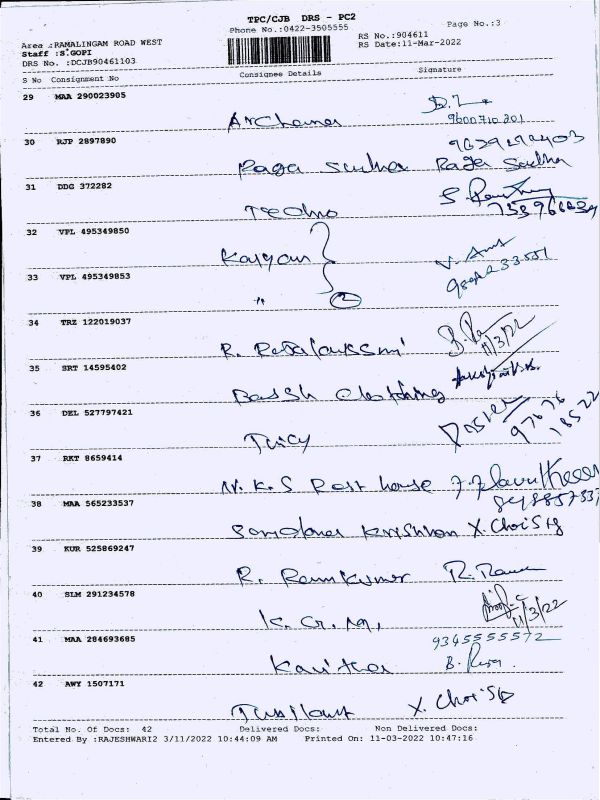 TPC/CJB DRS - PC2
Phone No.:0422-3505555 Page No.:3
Area :RAMALINGAM ROAD WEST RS No.:904611
Staff :S.GOPI RS Date:11-Mar-2022
DRS No. :DCJB90461103
S No Consignment No Consignee Details Signature
29 MAA 290023905
Archana 9600710201
30 RJP 2897890
Raga Sudha Raga Sudha
31 DDG 372282
Techno
32 VPL 495349850
Kalyan
33 VPL 495349853
" 2
34 TRZ 122019037
R. Rajalakssmi 11/3/22
35 SRT 14595402
Badsh Clothing
36 DEL 527797421
Juicy 97676 18522
37 RKT 8659414
N.K.S Rest house
38 MAA 565233537
Krishnan X. Choisty
39 KUR 525869247
R. Ramkumar R. Ram
40 SLM 291234578
K.G.M, 11/3/22
41 MAA 284693685 9345555572
Kavitha
42 AWY 1507171
X. Choisty
Total No. Of Docs: 42 Delivered Docs: Non Delivered Docs:
Entered By :RAJESHWARI2 3/11/2022 10:44:09 AM Printed On: 11-03-2022 10:47:16